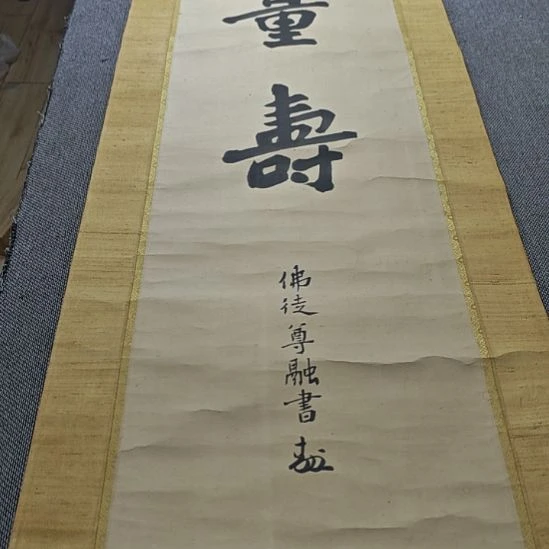 量壽
佛徒尊融書